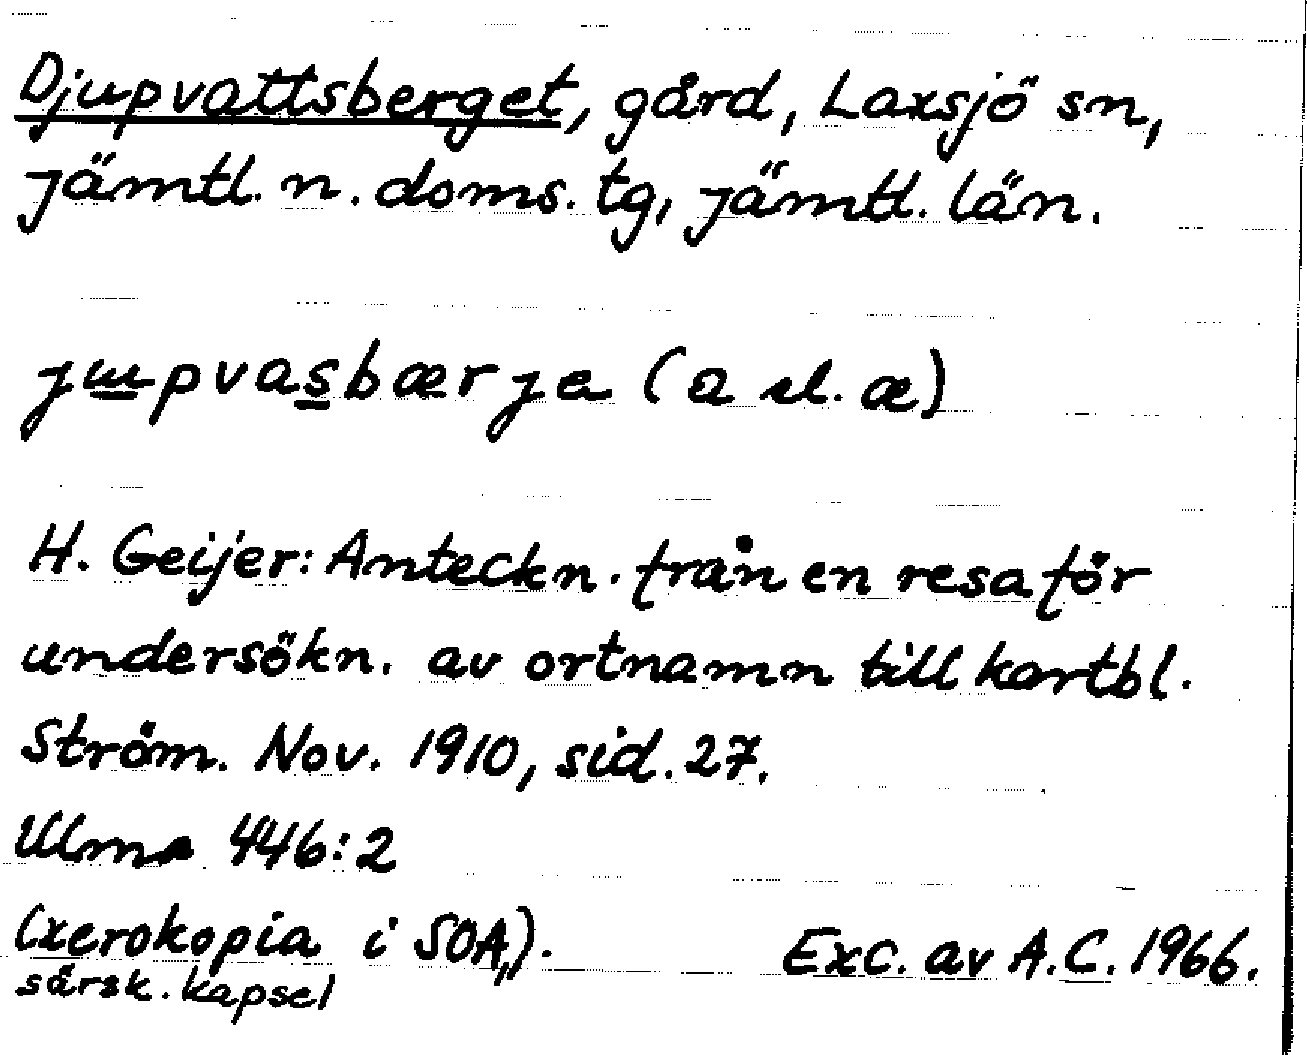 Djupvattsberget, gård, Laxsjö sn,
Jämtl. n. doms. tg, Jämtl. län.
jɯpvasbærje (a el. æ)
H. Geijer: Anteckn. från en resa för
undersökn. av ortnamn till kartbl.
Ström. Nov. 1910, sid. 27.
Ulma 446:2
(xerokopia i SOA,).
särsk. kapsel
Exc. av A.C. 1966.